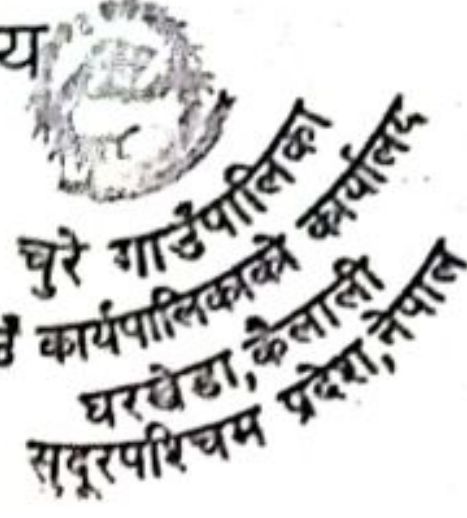 य
चुरे गाउँपालिका
उँ कार्यपालिकाको कार्यालय
घरखेडा,कैलाली
सुदूरपश्चिम प्रदेश,नेपाल